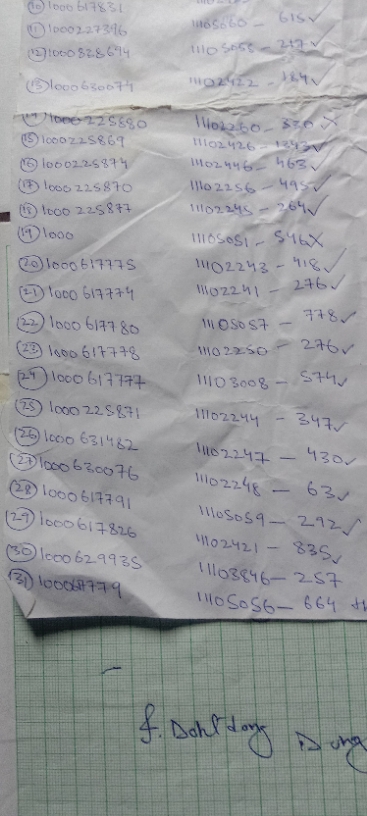 (10) 1000617831 11105060 - 615 ✓
(11) 1000227396
(12) 1000828694 11105055 - 217 ✓
(13) 1000630074 11102422 - 184 ✓
(14) 1000225880 11102260 - 330 X
(15) 1000225869 11102426 - 1343 ✓
(16) 1000225874 11102446 - 463 ✓
(17) 1000225870 11102256 - 495 ✓
(18) 1000225877 11102245 - 264 ✓
(19) 1000 11105051 - 546 X
(20) 1000617775 11102243 - 418 ✓
(21) 1000617774 11102241 - 276 ✓
(22) 1000617780 11105057 - 778 ✓
(23) 1000617778 11102250 - 276 ✓
(24) 1000617777 11103008 - 574 ✓
(25) 1000225871 11102244 - 347 ✓
(26) 1000631482 11102247 - 430 ✓
(27) 1000630076 11102248 - 63 ✓
(28) 1000617791 11105059 - 292 ✓
(29) 1000617826 11102421 - 835 ✓
(30) 1000629935 11103846 - 257
(31) 11105056 - 664